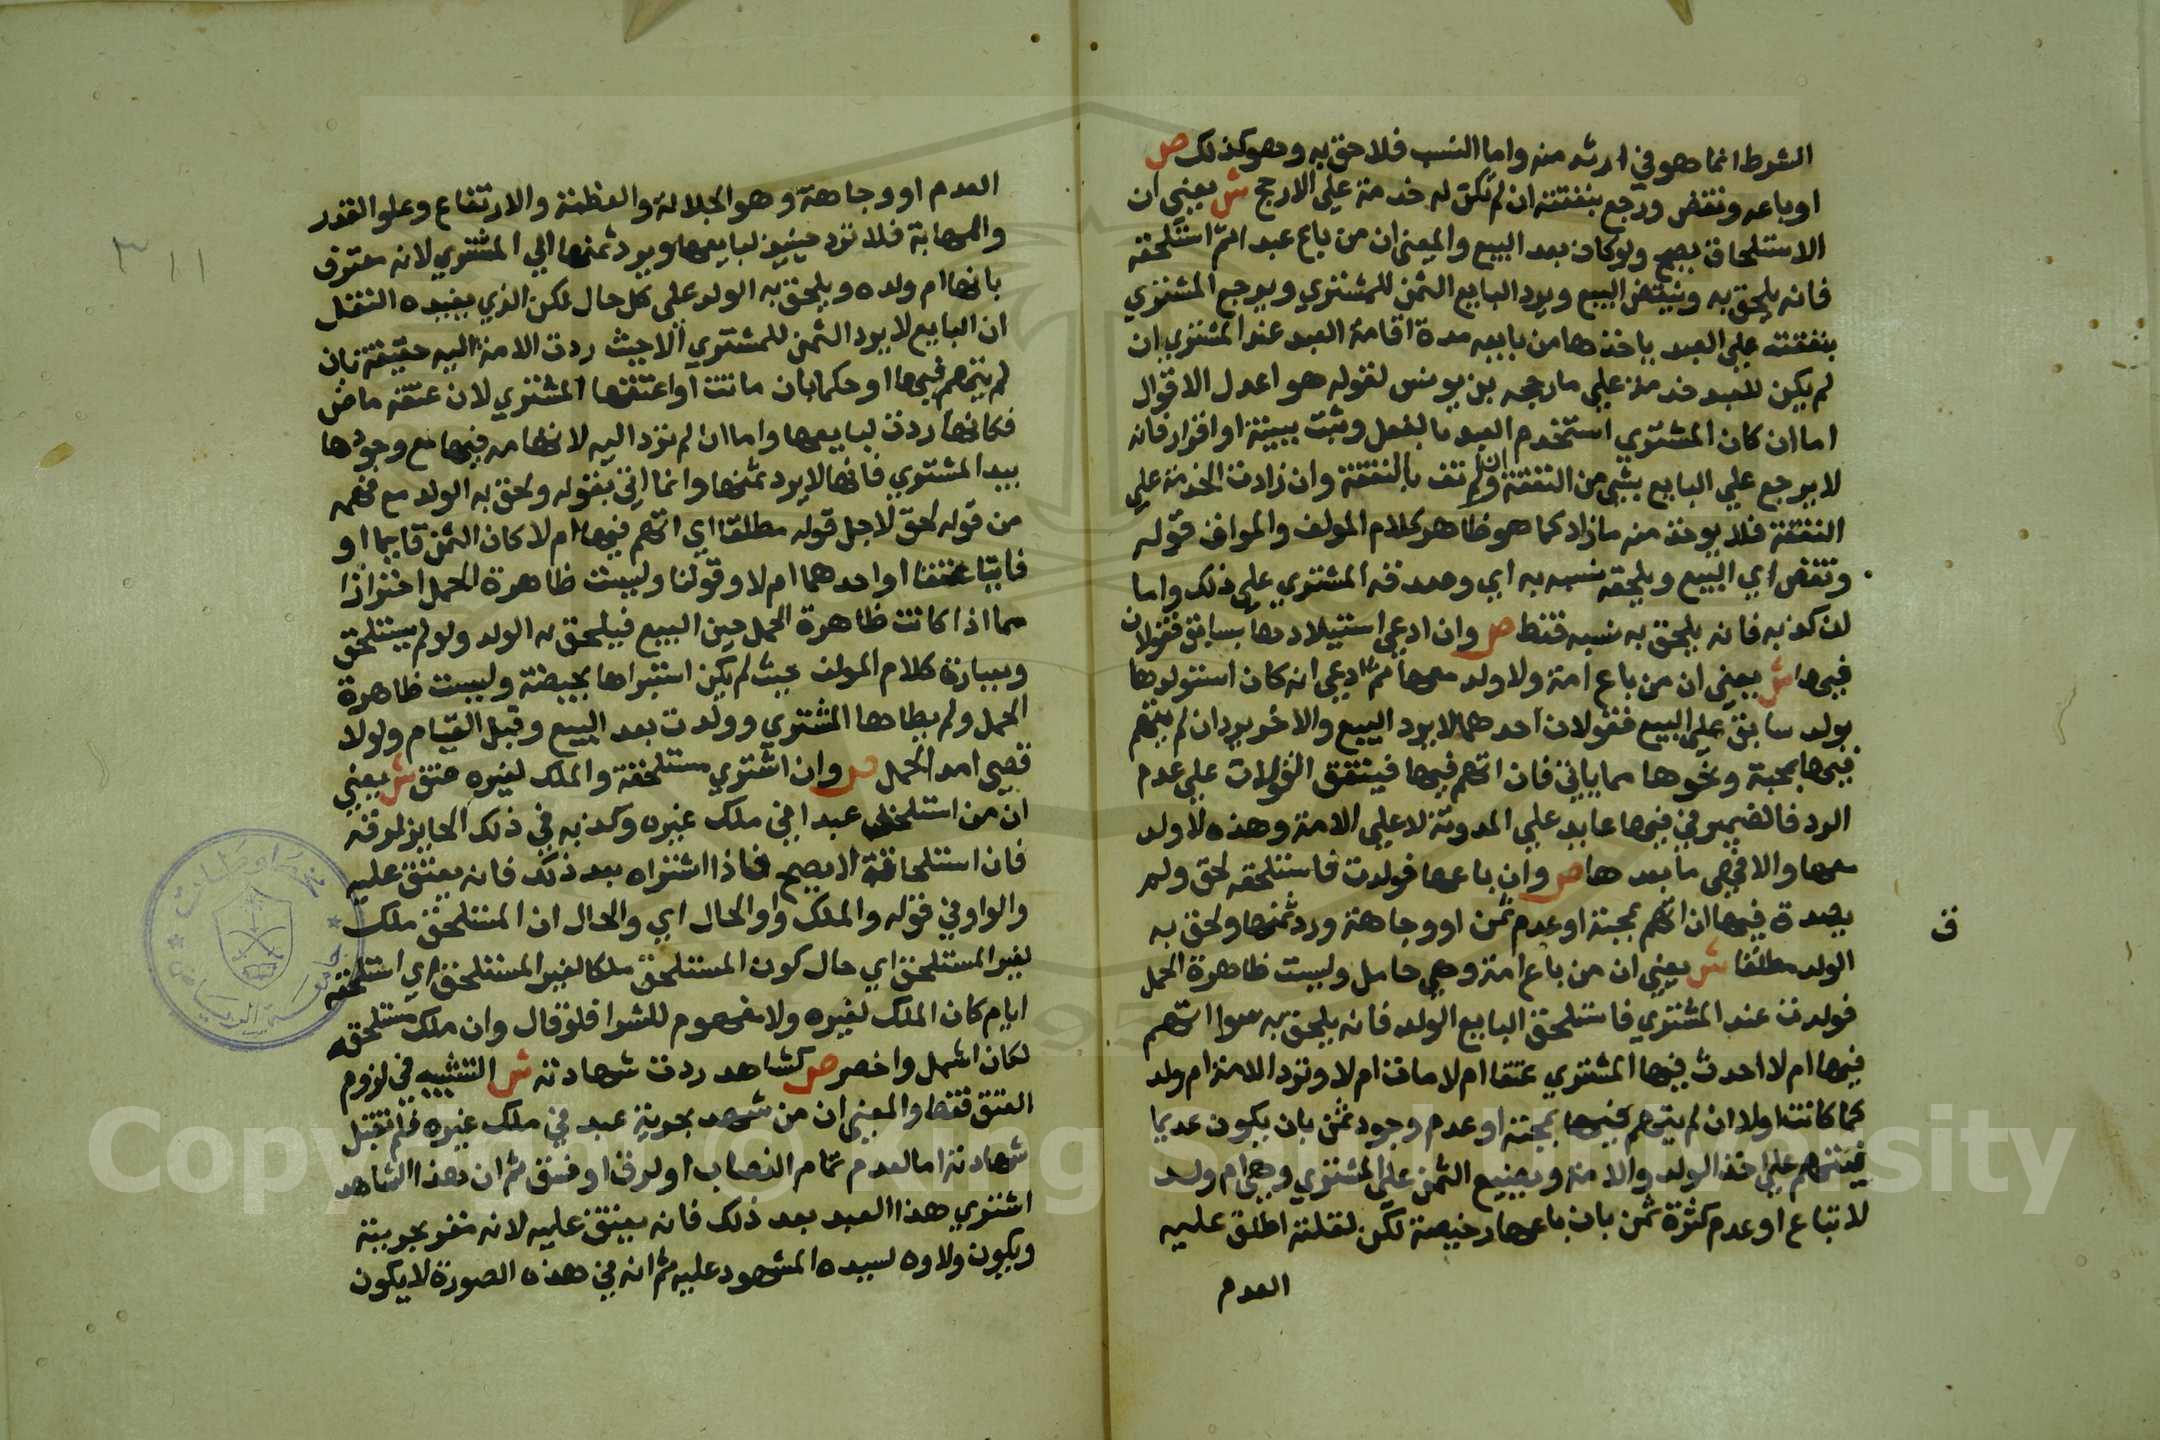 الشرط انما هو في ارثه منه واما النسب فلاحق به وهو كذلك ص
او باعه ونقض ورجع بنفقته ان لم تكن له خدمة علي الارجح ش يعني ان
الاستلحاق يصح ولو كان بعد البيع والمعني ان من باع عبدا ثم استلحقه
فانه يلحق به وينقض البيع ويرد البايع الثمن للمشتري ويرجع المشتري
بنفقته علي العبد ياخذها من بايعه مدة اقامة العبد عند المشتري ان
لم يكن للعبد خدمة علي ما رجحه بن يونس لقوله هو اعدل الاقوال
اما ان كان المشتري استخدم العبد بالفعل وثبت ببينة او اقرار فانه
لا يرجع علي البايع بشي من النفقة وان لم تف بالنفقة وان زادت الخدمة علي
النفقة فلا يوخذ منه ما زاد كما هو ظاهر كلام المولف والمواف قوله
ونقض اي البيع ويلحقه نسبه به اي وصدقه المشتري علي ذلك واما
لو كذبه فانه يلحق به نسبه فقط ص وان ادعي استيلادها بسابق فقولان
فيها ش يعني ان من باع امة ولا ولد معها ثم ادعي انه كان استولدها
بولد سابق علي البيع فقولان احدهما لا يرد البيع والاخر يرد ان لم يتهم
فيها بمحبة ونحوها مما ياتي فان اتهم فيها فيتفق القولان علي عدم
الرد فالضمير في فيها عايد علي المدونة لا علي الامة وهذه لا ولد
معها والا فهي ما بعدها ص وان باعها فولدت فاستلحقه لحق ولم
يصدق فيها ان اتهم بمحبة او عدم ثمن او وجاهة ورد ثمنها ولحق به
ق
الولد مطلقا ش يعني ان من باع امة وهي حامل وليست ظاهرة الحمل
فولدت عند المشتري فاستلحق البايع الولد فانه يلحق به سوا اتهم
فيها ام لا احدث فيها المشتري عتقا ام لا ماتت ام لا وترد الامة ام ولد
كما كانت اولا ان لم يتهم فيها بمحبة او عدم وجود ثمن بان يكون عديما
فيتهم علي اخذ الولد والامة ويضيع الثمن علي المشتري وهي ام ولد
لا تباع او عدم كثرة ثمن بان باعها رخيصة لكن لقلته اطلق عليه
العدم
العدم او وجاهة وهو الجلالة والعظمة والارتفاع وعلو القدر
والمهابة فلا ترد حينيذ لبايعها ويرد ثمنها الي المشتري لانه معترف
بانها ام ولده ويلحق به الولد علي كل حال لكن الذي يفيده النقل
ان البايع لا يرد الثمن للمشتري الا حيث ردت الامة اليه حقيقة بان
لم يتهم فيها او حكما بان ماتت او اعتقها المشتري لان عتقه ماض
فكانها ردت لبايعها واما ان لم ترد اليه لاتهامه فيها مع وجودها
بيد المشتري فانها لا يرد ثمنها وانما اتي بقوله ولحق به الولد مع فهمه
من قوله لحق لاجل قوله مطلقا اي اتهم فيها ام لا كان الثمن قايما او
فايتا عتقا او احدهما ام لا وقولنا وليست ظاهرة الحمل احترازا
مما اذا كانت ظاهرة الحمل حين البيع فيلحق به الولد ولو لم يستلحق
وبعبارة كلام المولف حيث لم يكن استبراها بحيضة وليست ظاهرة
الحمل ولم يطاها المشتري وولدت بعد البيع وقبل القيام ولولا
قصي امد الحمل ص وان اشتري مستلحقه والملك لغيره عتق ش يعني
ان من استلحق عبدا في ملك غيره وكذبه في ذلك الحايز لرقه
فان استلحاقه لا يصح فاذا اشتراه بعد ذلك فانه يعتق عليه
والواو في قوله والملك واو الحال اي والحال ان المستلحق ملك
لغير المستلحق اي حال كون المستلحق ملكا لغير المستلحق اي استلحقه
ايام كان الملك لغيره ولا مفهوم للشرا فلو قال وان ملك مستلحقه
لكان اشمل واخصر ص كشاهد ردت شهادته ش التشبيه في لزوم
العتق فقط والمعني ان من شهد بحرية عبد في ملك غيره فلم تقبل
شهادته اما لعدم تمام النصاب او لرق او فسق ثم ان هذا الشاهد
اشتري هذا العبد بعد ذلك فانه يعتق عليه لانه مقر بحريته
ويكون ولاوه لسيده المشهود عليه ثم انه في هذه الصورة لا يكون
٣١١
Copyright © King Saud University